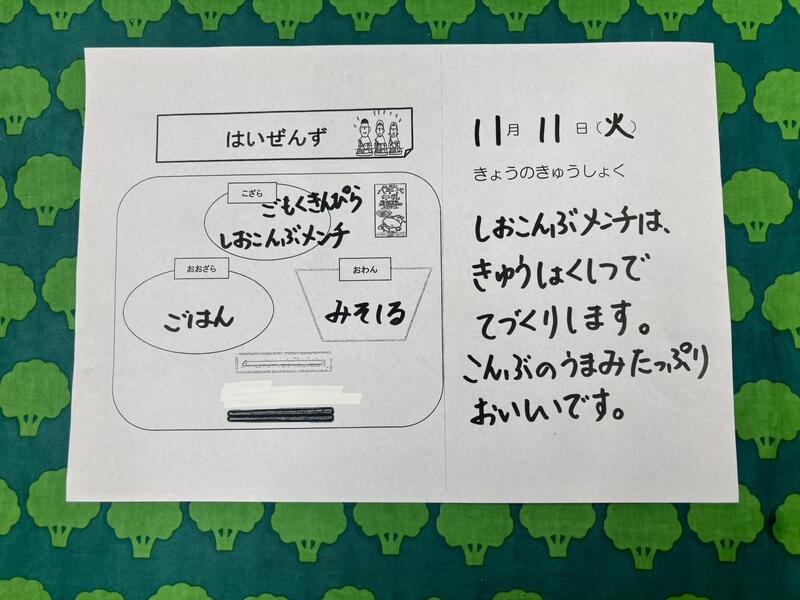 はいぜんず
こざら
ごもくきんぴら
しおこんぶメンチ
おおざら
ごはん
おわん
みそしる
11月11日(火)
きょうのきゅうしょく
しおこんぶメンチは、
きゅうしょくしつで
てづくりします。
こんぶのうまみたっぷり
おいしいです。